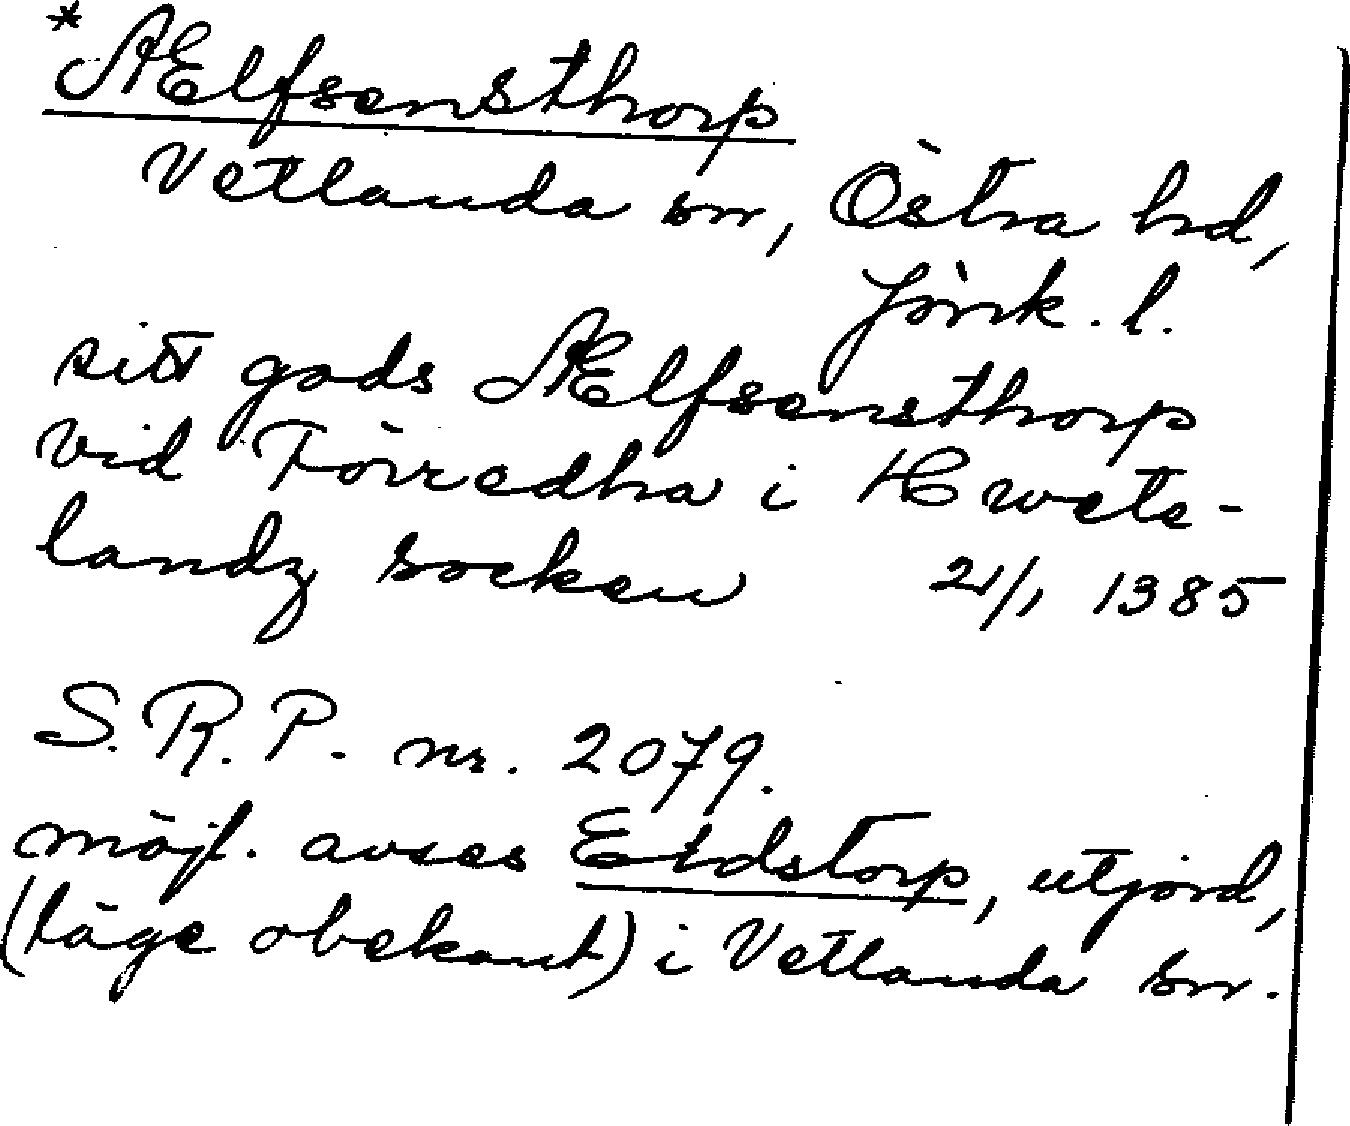 *Ælfsensthorp
Vetlanda sn, Östra hd,
Jönk. l.
sitt gods Ælfsensthorp
vid Förredha i Hwete-
landz socken 21/1 1385
S.R.P. nr. 2079.
möjl. avses Eldstorp, utjord,
(läge obekant) i Vetlanda sn.